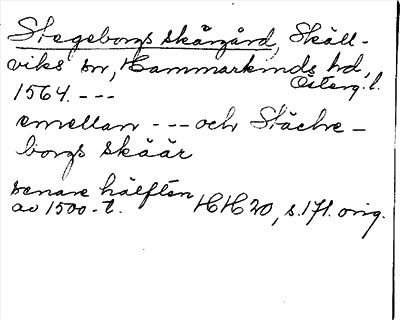 Stegeborgs skärgård, Skäll-
viks sn, Hammarkinds hd,
Österg. l.
1564. ---
emellan --- och Stäche-
borgs skäär
senare hälften
av 1500-t. HH 20, s. 171. orig.